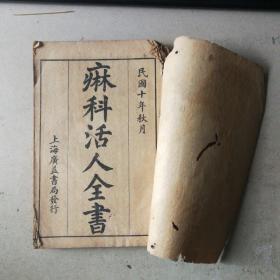 民國十年秋月
痳科活人全書
上海廣益書局發行